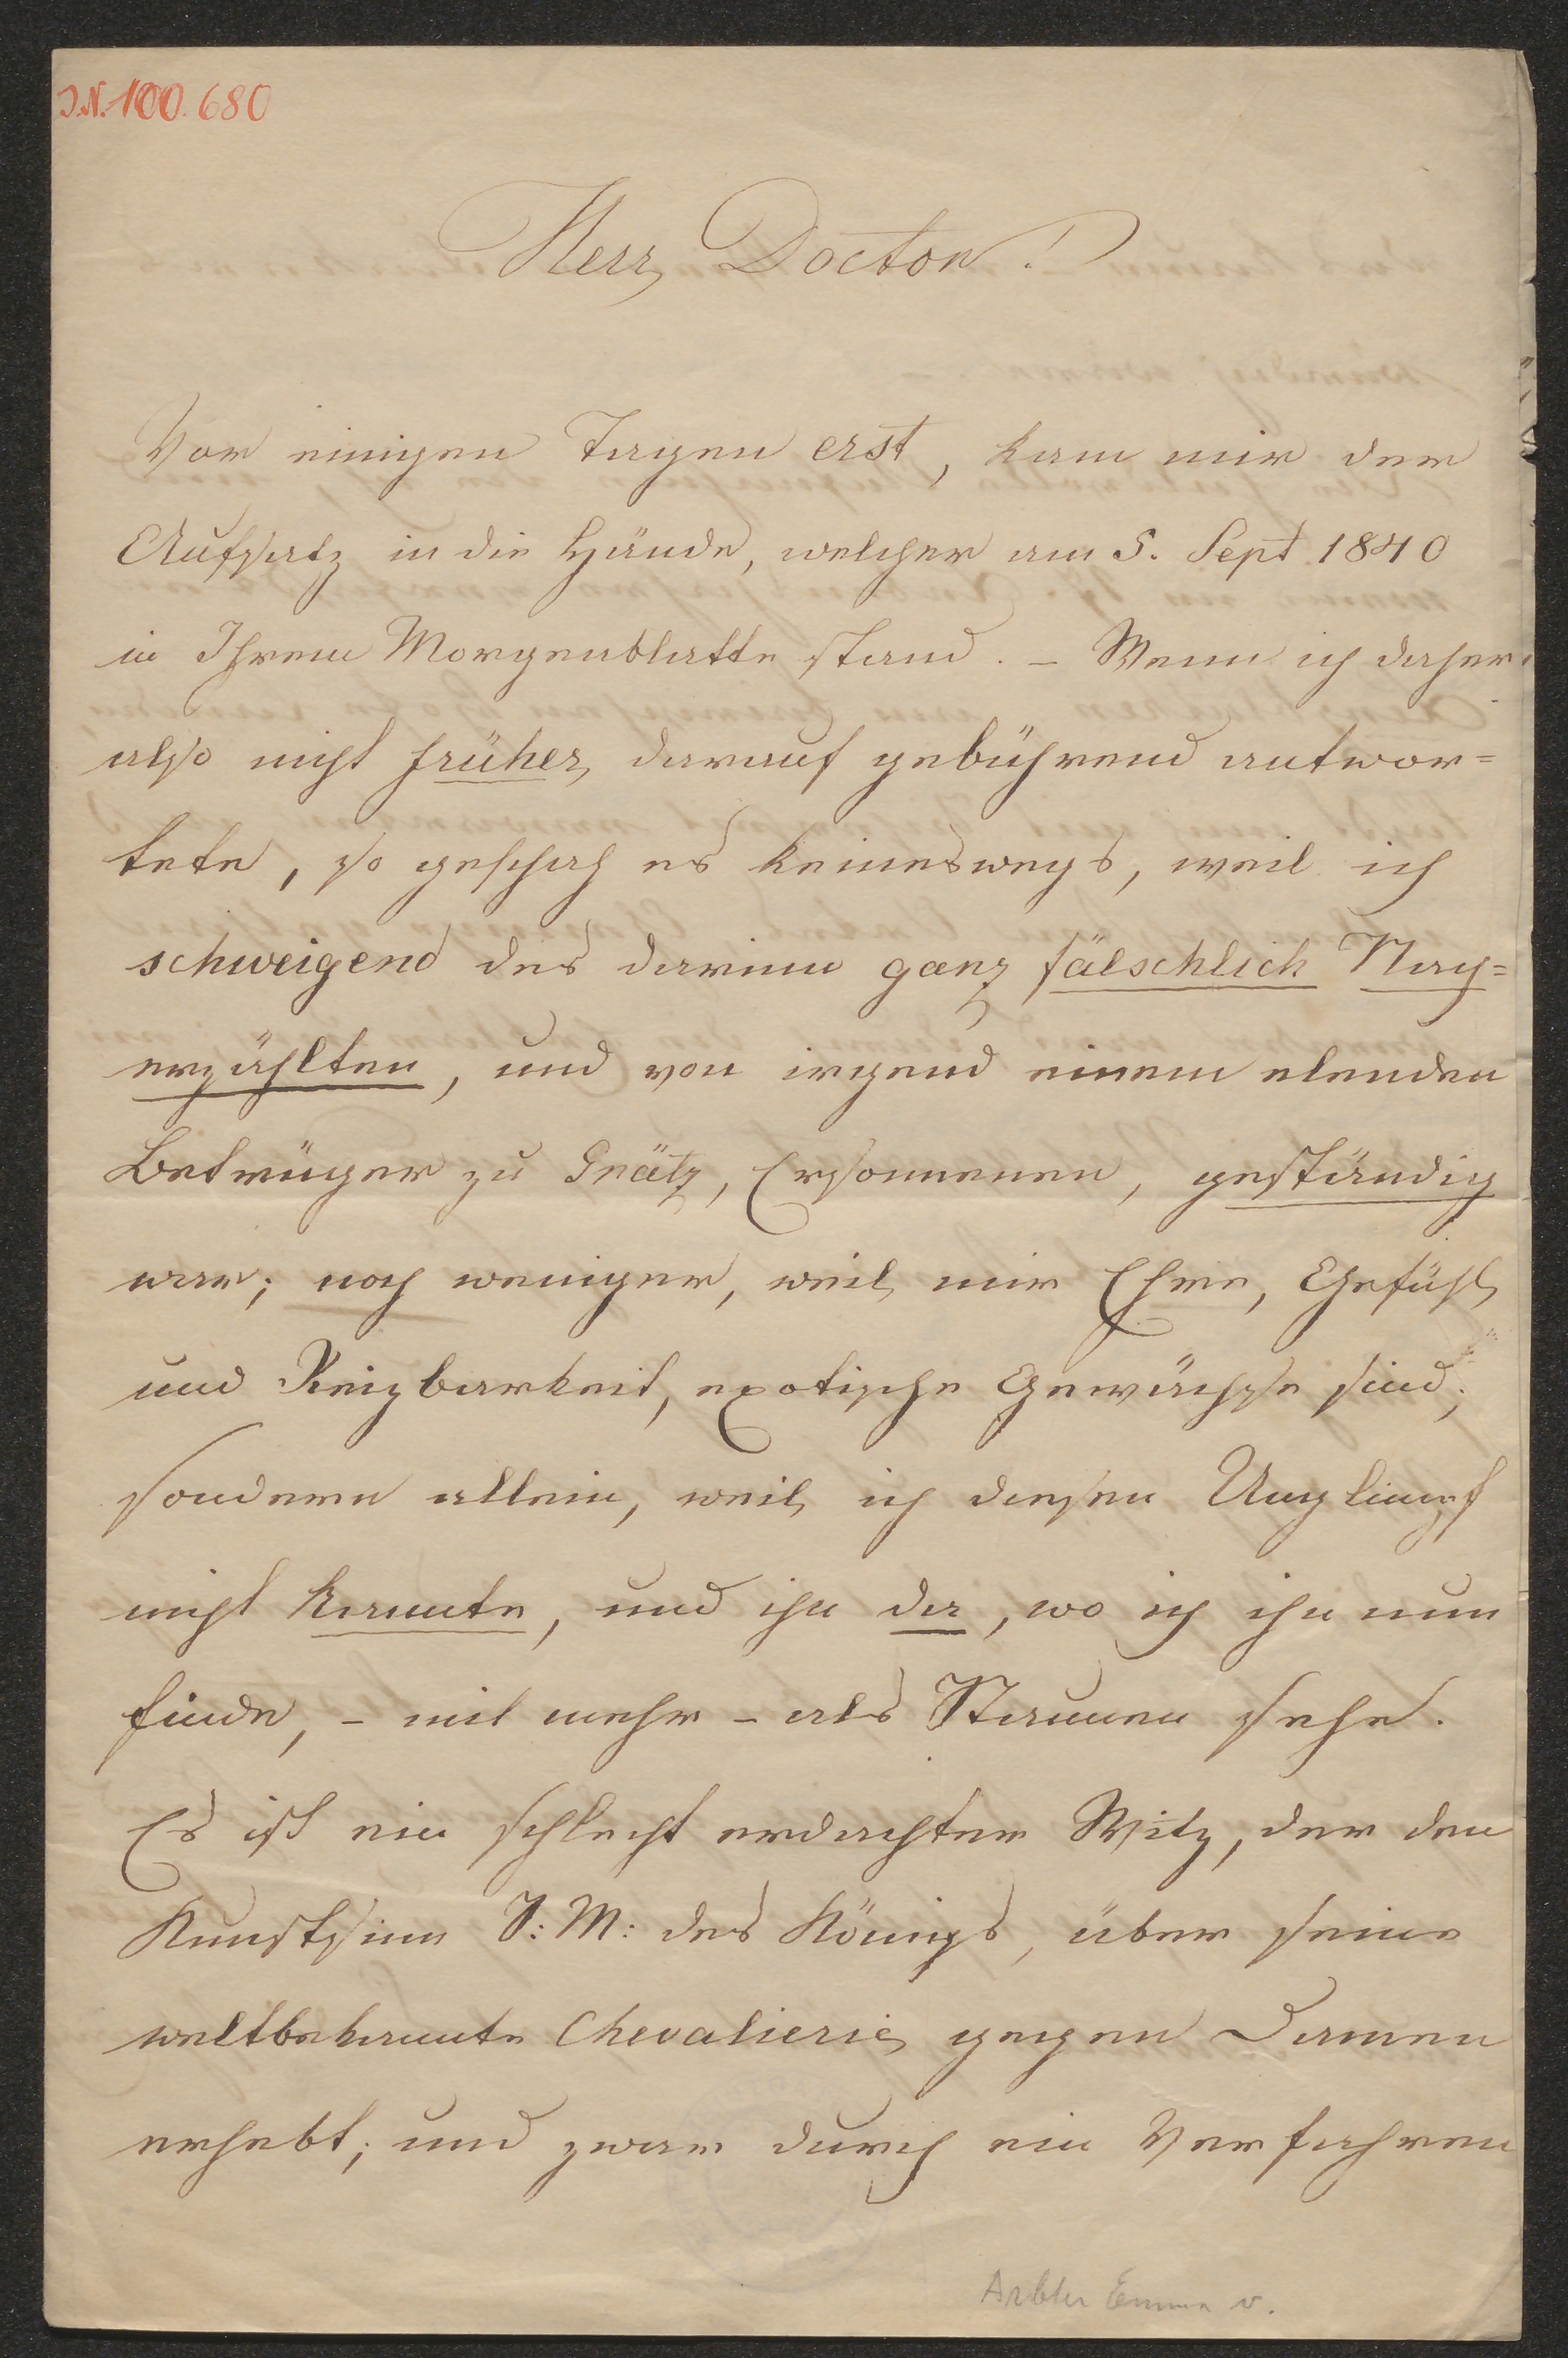 J.N. 100.680
Herr Doctor!
Vor einigen Tagen erst, kam mir der
Aufsatz in die Hände, welcher am 5. Sept. 1840
in Ihrem Morgenblatte stand. – Wenn ich daher
also nicht früher darauf gebührend antwor=
tete, so geschah es keineswegs, weil ich
schweigend des darinn ganz fälschlich Nach=
erzählten, und von irgend einem elenden
Betrüger zu Grätz, Ersonnenen, geständig
war; noch weniger, weil mir Ehre, Gefühl
und Reizbarkeit, exotische Gewächse sind;
sondern allein, weil ich dessen Unglimpf
nicht kannte, und ihn da, wo ich ihn nun
finde, – mit mehr – als Staunen sehe.
Es ist ein schlecht erdachter Witz, der den
Kunstsinn S: M: des Königs, über seine
weltbekannte Chevalierie gegen Damen
erhebt; und zwar durch ein Verfahren
Arbter Emma v.